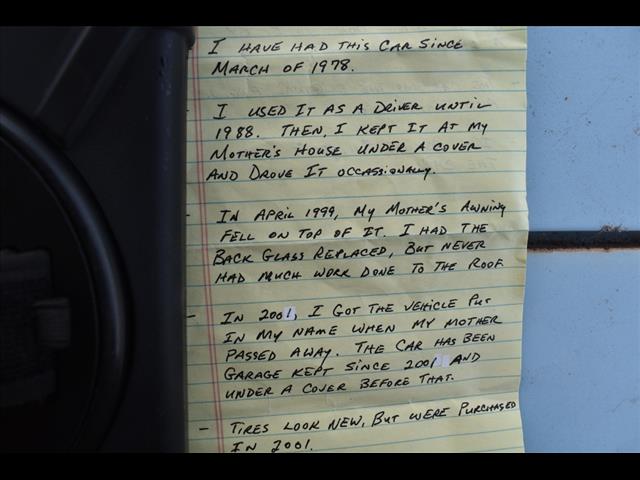 I HAVE HAD THIS CAR SINCE
MARCH OF 1978.
- I USED IT AS A DRIVER UNTIL
1988. THEN, I KEPT IT AT MY
MOTHER'S HOUSE UNDER A COVER
AND DROVE IT OCCASSIONALLY.
- IN APRIL 1999, MY MOTHER'S AWNING
FELL ON TOP OF IT. I HAD THE
BACK GLASS REPLACED, BUT NEVER
HAD MUCH WORK DONE TO THE ROOF
- IN 2001, I GOT THE VEHICLE PUT
IN MY NAME WHEN MY MOTHER
PASSED AWAY. THE CAR HAS BEEN
GARAGE KEPT SINCE 2001 AND
UNDER A COVER BEFORE THAT.
- TIRES LOOK NEW, BUT WERE PURCHASED
IN 2001.